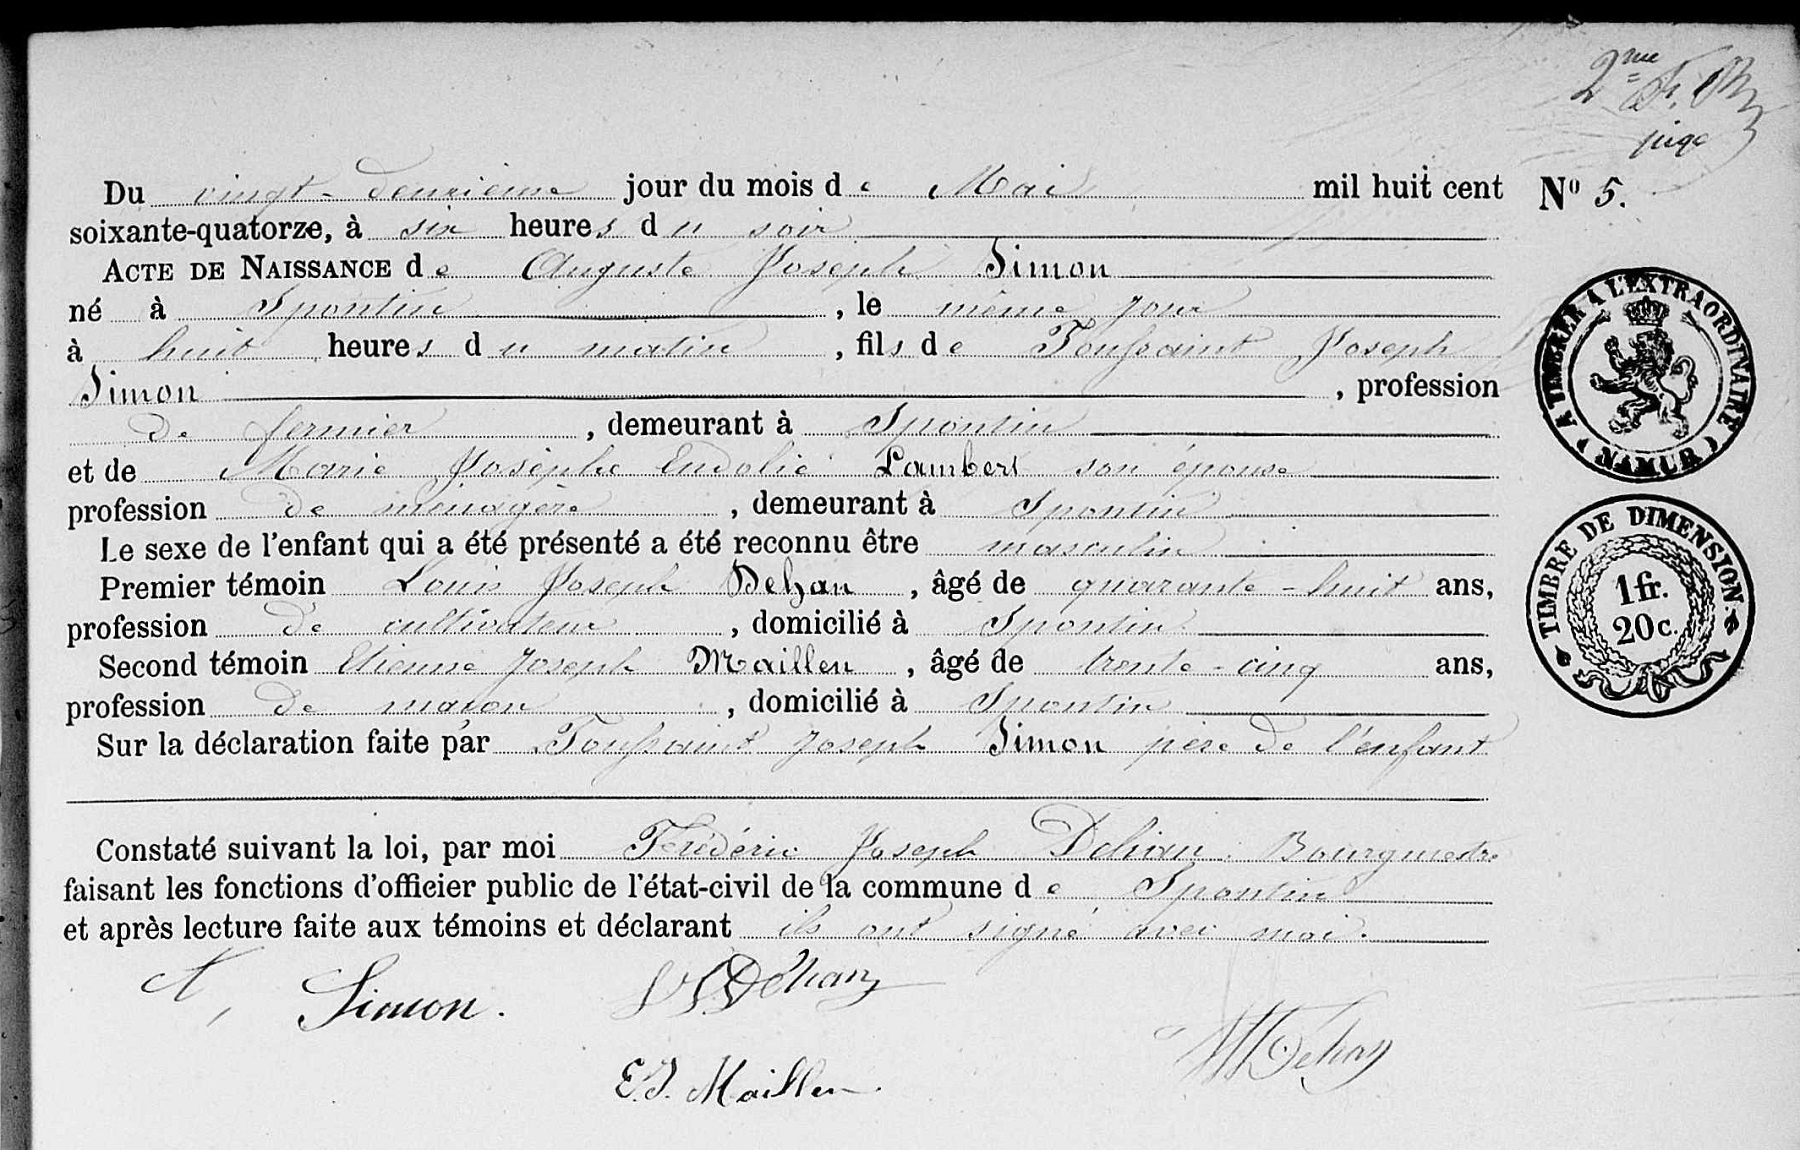 2me
juge
Du vingt-deuxième jour du mois de Mai mil huit cent
No 5.
soixante-quatorze, à six heures du soir
ACTE DE NAISSANCE de Auguste Joseph Simon
né à Spontin, le même jour
à huit heures du matin, fils de Toussaint Joseph
Simon, profession
de fermier, demeurant à Spontin
et de Marie Josèphe Eudolie Lambert son épouse
profession de ménagère, demeurant à Spontin
Le sexe de l'enfant qui a été présenté a été reconnu être masculin
Premier témoin Louis Joseph Dehan, âgé de quarante-huit ans,
profession de cultivateur, domicilié à Spontin
Second témoin Etienne Joseph Maillen, âgé de trente-cinq ans,
profession de maçon, domicilié à Spontin
Sur la déclaration faite par Toussaint Joseph Simon père de l'enfant
Constaté suivant la loi, par moi Frédéric Joseph Dehan, Bourgmestre
faisant les fonctions d'officier public de l'état-civil de la commune de Spontin
et après lecture faite aux témoins et déclarant ils ont signé avec moi.
Simon.
Dehan
E.J. Maillen
Dehan
A TIMBRER A L'EXTRAORDINAIRE
NAMUR
TIMBRE DE DIMENSION
1 fr.
20 c.